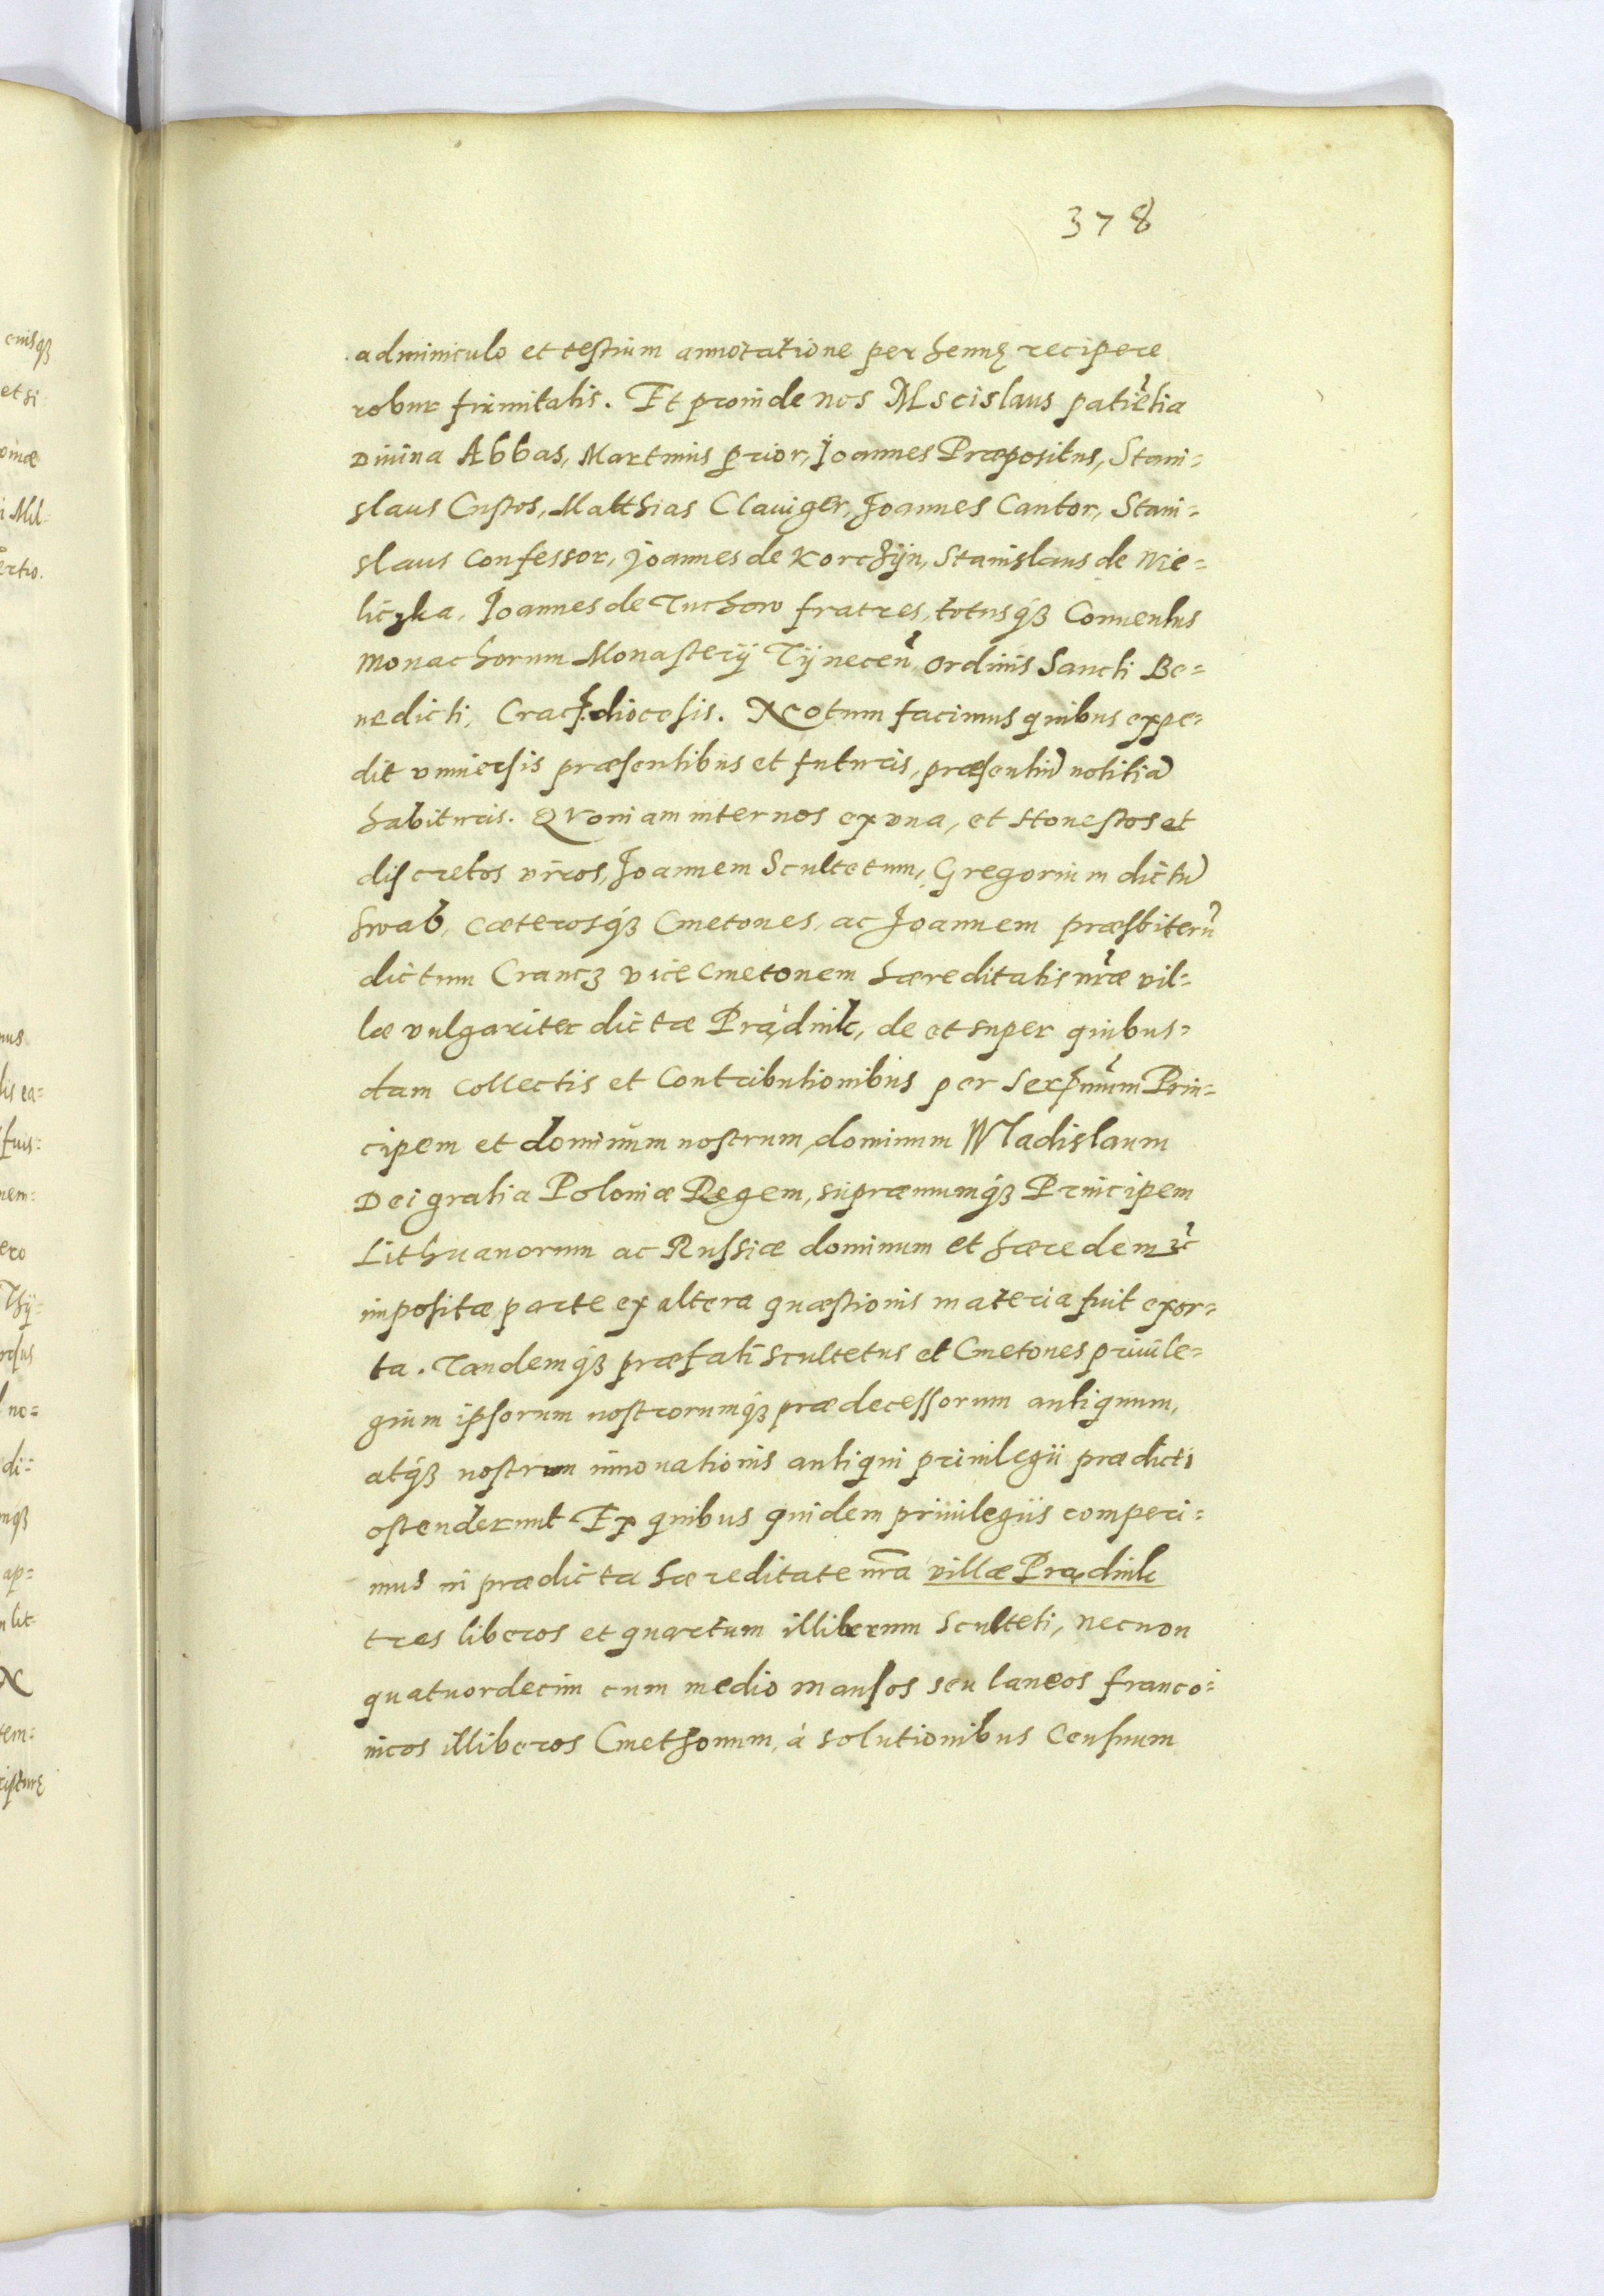 378
adminiculo et testium annotatione perhennę recipere
robur firmitatis. Et proinde nos Mscislaus patiẽtia
Diuina Abbas, Martinus prior, Joannes Præpositus, Stani=
slaus Custos, Matthias Clauiger, Joannes Cantor, Stani=
slaus Confessor, Joannes de Korczÿn, Stanislaus de Wie=
liczka, Joannes de Tuchow fratres, totusq́ꝫ Conuentus
Monachorum Monasterÿ Tÿnecen̉ ordinis Sancti Be=
nedicti, Crac̉. diocesis. Notum facimus quibus expe=
dit vniuersis præsentibus et futuris, præsentiũ notitiã
habituris. Qvoniam inter nos ex vna, et Honestos et
discretos viros, Joannem Scultetum, Gregorium dictũ
Swab, cæterosq́ꝫ Cmetones, ac Joannem præsbiterũ
dictum Crancz vice Cmetonem hæreditatis nr̃æ vil=
læ vulgariter dictæ Prądnik, de et super quibus=
dam collectis et Contributionibus per Serẽmum Prin=
cipem et dominum nostrum, dominum Wladislaum
Dei gratia Poloniæ Regem, supræmumq́ꝫ Principem
Lithuanorum ac Russiæ dominum et hæredem &c
impositæ parte ex altera quæstionis materia fuit exor=
ta. Tandemq́ꝫ præfati Scultetus et Cmetones priuile=
gium ipsorum nostrorumq́ꝫ prædecessorum antiquum,
atq́ꝫ nostrum innouationis antiqui priuilegii prædicti
ostenderunt Ex quibus quidem priuilegiis comperi=
mus in prædicta hæreditate nr̃a villæ Prądnik
tres liberos et quartum illiberum Sculteti, necnon
quatuordecim cum medio mansos seu laneos franco=
nicos illiberos Cmethonum, à solutionibus Censuum